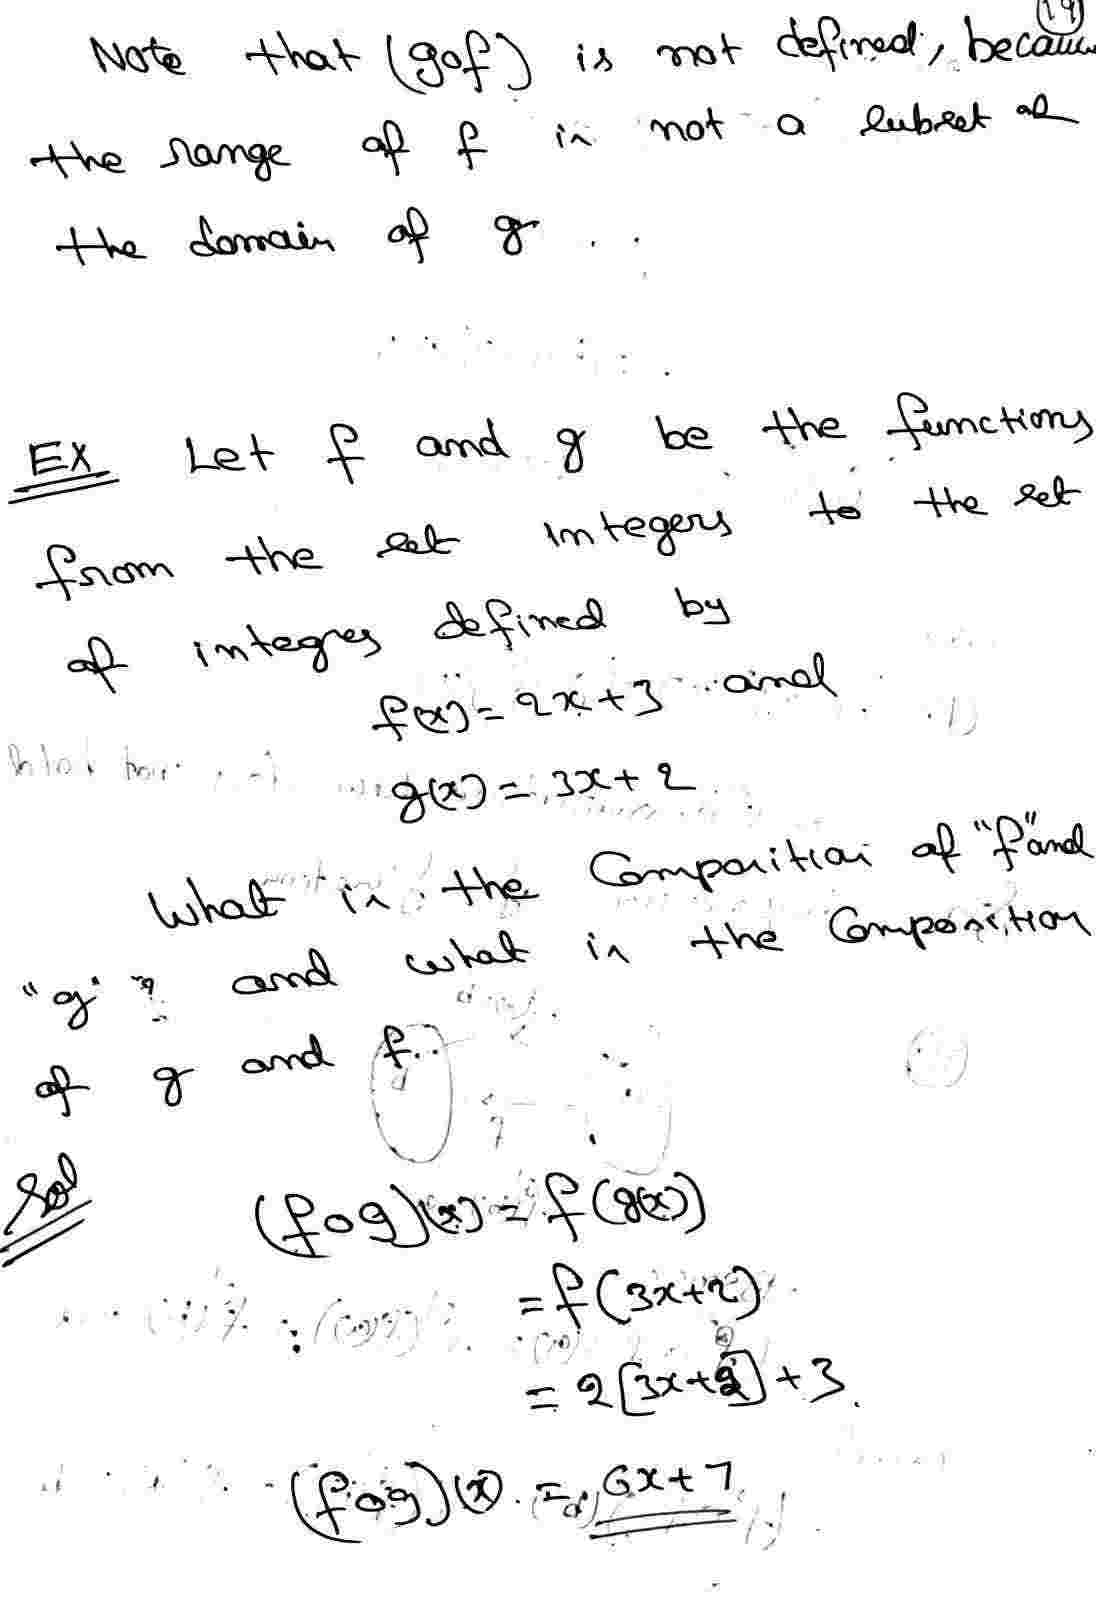 19
Note that (gof) is not defined, because
the range of f is not a subset of
the domain of g
EX Let f and g be the functions
from the set integers to the set
of integres defined by
f(x) = 2x + 3 and
g(x) = 3x + 2
What is the Composition of "f" and
"g" ? and what is the Composition
of g and f.
Sol
(fog)(x) = f(g(x))
= f(3x+2)
= 2[3x+2]+3.
(fog)(x) = 6x+7